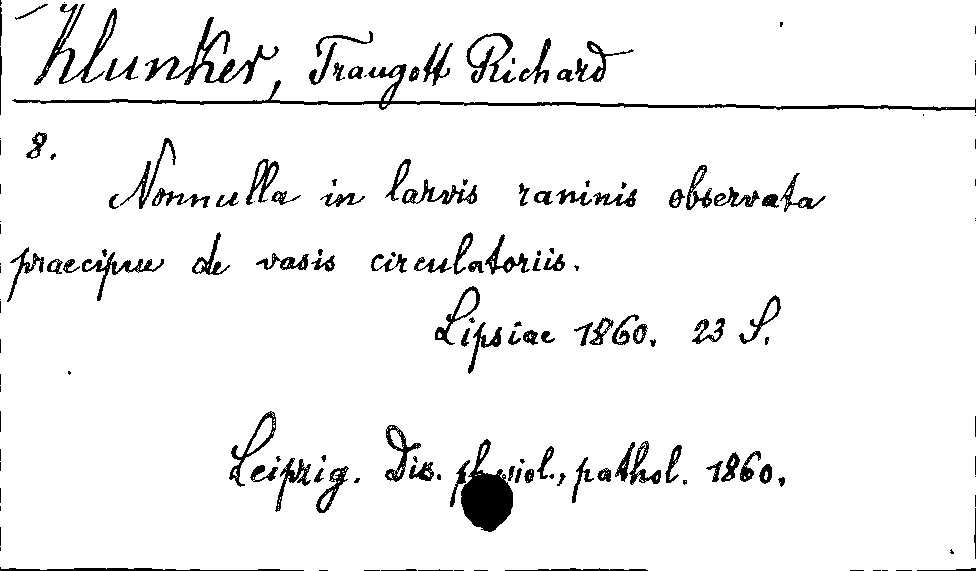 Klunker, Traugott Richard
8.
Nonnulla in larvis raninis observata
praecipue de vasis circulatoriis.
Lipsiae 1860. 23 S.
Leipzig. Dis. physiol., pathol. 1860.